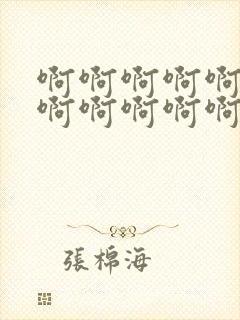 啊啊啊啊啊
啊啊啊啊啊
張棉海